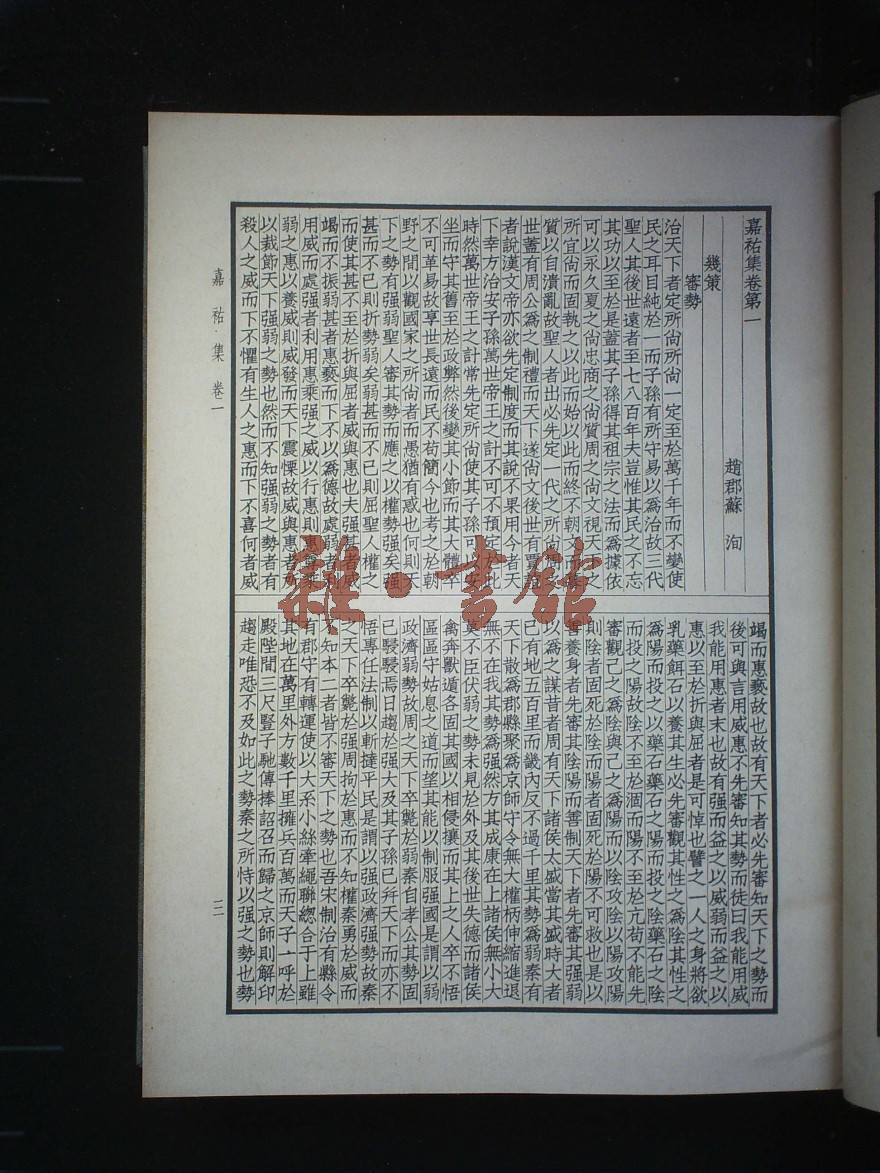 嘉祐集卷第一
趙郡蘇 洵
幾策
審勢
治天下者定所尚所尚一定至於萬千年而不變使
民之耳目純於一而子孫有所守易以為治故三代
聖人其後世遠者至七八百年夫豈惟其民之不忘
其功以至於是蓋其子孫得其祖宗之法而為據依
可以永久夏之尚忠商之尚質周之尚文視天下之
所宜尚而固執之以此而始以此而終不朝文而
質以自潰亂故聖人者出必先定一代之所尚
世蓋有周公為之制禮而天下遂尚文後世有賈誼
者說漢文帝亦欲先定制度而其說不果用今者天
下幸方治安子孫萬世帝王之計不可不預定於此
時然萬世帝王之計常先定所尚使其子孫可以安
坐而守其舊至於政弊然後變其小節而其大體卒
不可革易故享世長遠而民不苟簡今也考之於朝
野之間以觀國家之所尚者而愚猶有惑也何則天
下之勢有强弱聖人審其勢而應之以權勢强矣强
甚而不已則折勢弱矣弱甚而不已則屈聖人權之
而使其甚不至於折與屈者威與惠也夫强甚者威
竭而不振弱甚者惠褻而下不以為德故處弱者利
用威而處强者利用惠乘强之威以行惠則惠尊乘
弱之惠以養威則威發而天下震慄故威與惠者所
以裁節天下强弱之勢也然而不知强弱之勢者有
殺人之威而下不懼有生人之惠而下不喜何者威
竭而惠褻故也故有天下者必先審知天下之勢而
後可與言用威惠不先審知其勢而徒曰我能用威
我能用惠者末也故有强而益之以威弱而益之以
惠以至於折與屈者是可悼也譬之一人之身將欲
乳藥餌石以養其生必先審觀其性之為陰其性之
為陽而投之以藥石藥石之陽而投之陰藥石之陰
而投之陽故陰不至於涸而陽不至於亢苟不能先
審觀己之為陰與己之為陽而以陰攻陰以陽攻陽
則陰者固死於陰而陽者固死於陽不可救也是以
善養身者先審其陰陽而善制天下者先審其强弱
以為之謀昔者周有天下諸侯太盛當其盛時大者
已有地五百里而畿內反不過千里其勢為弱秦有
天下散為郡縣聚為京師守令無大權柄伸縮進退
無不在我其勢為强然方其成康在上諸侯無小大
莫不臣伏弱之勢未見於外及其後世失德而諸侯
禽奔獸遁各固其國以相侵攘而其上之人卒不悟
區區守姑息之道而望其能以制服强國是謂以弱
政濟弱勢故周之天下卒斃於弱秦自孝公其勢固
已駸駸焉日趨於强大及其子孫已并天下而亦不
悟專任法制以斬撻平民是謂以强政濟强勢故秦
之天下卒斃於强周拘於惠而不知權秦勇於威而
不知本二者皆不審天下之勢也吾宋制治有縣令
有郡守有轉運使以大系小絲牽繩聯總合于上雖
其地在萬里外方數千里擁兵百萬而天子一呼於
殿陛間三尺豎子馳傳捧詔召而歸之京師則解印
趨走唯恐不及如此之勢秦之所恃以强之勢也勢
嘉祐·集 卷一
三
雜·書館